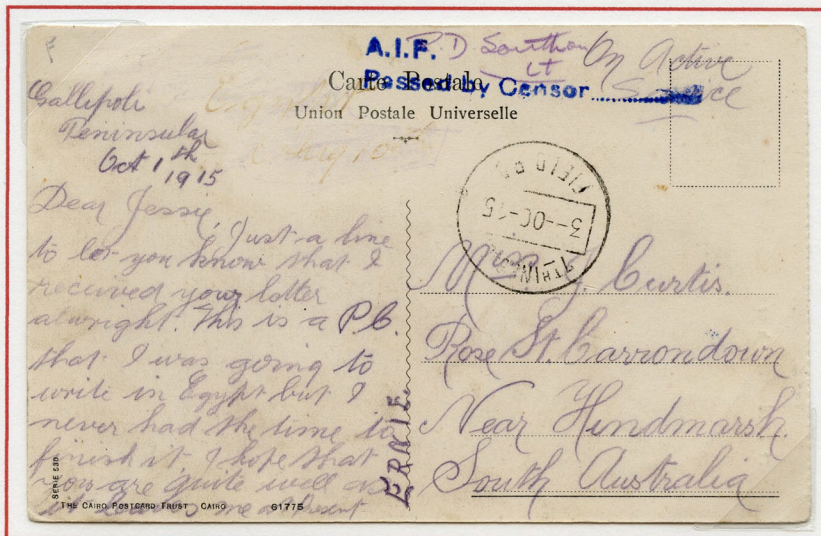 A.I.F.
Passed by Censor
On Active
Service
Lt
Carte Postale
Union Postale Universelle
Gallipoli
Peninsular
Oct 1th
1915
Dear Jessie, Just a line
to let you know that I
received your letter
alwright. This is a P.C.
that I was going to
write in Egypt but I
never had the time to
finish it. I hope that
you are quite well as
it leaves me at Present
ERNIE.
FIELD P.
3-OC-15
Curtis.
Rose St. Carrondown
Near Hindmarsh.
South Australia
SERIE 530.
THE CAIRO POSTCARD TRUST CAIRO 61775